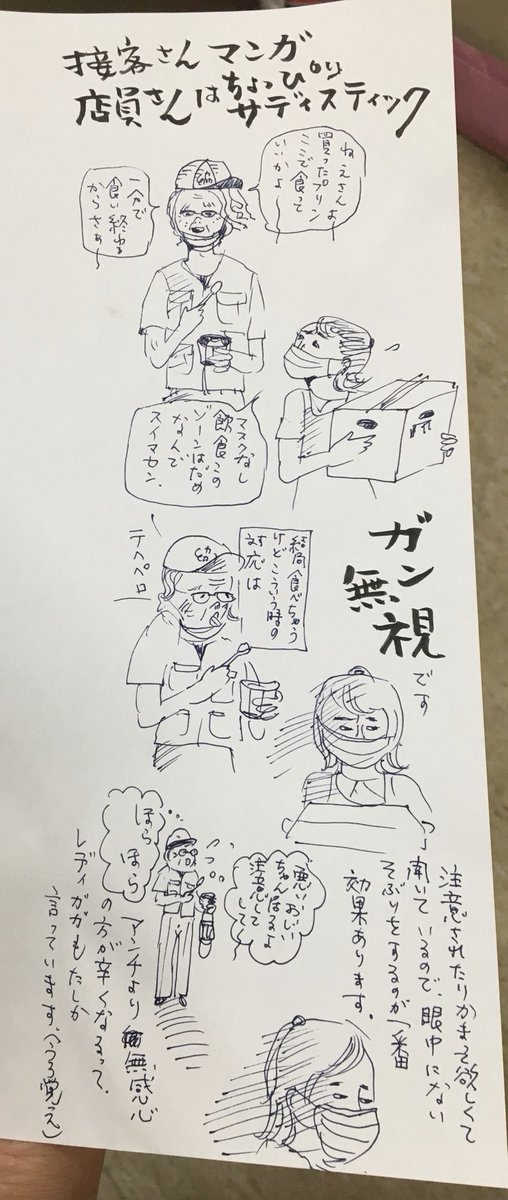 接客さんマンガ
店員さんはちょっぴりサディスティック
ねえさんよ
買ったプリン
ここで食って
いいかよ
一分で
食い終わる
からさぁ〜
マスクなし
飲食この
ゾーンはだめ
なんで
スイマセン.
テヘペロ
結局食べちゃう
けどこういう時の
対応は
ガン
無視
です
注意されたりかまって欲しくて
聞いているので、眼中にない
そぶりをするのが一番
効果あります。
悪いおい
ちゃんはるよ
注意して
して
ほら
ほら
アンチより無感心
の方が辛くなるって、
レディガガもたしか
言っています。(うろ覚え)